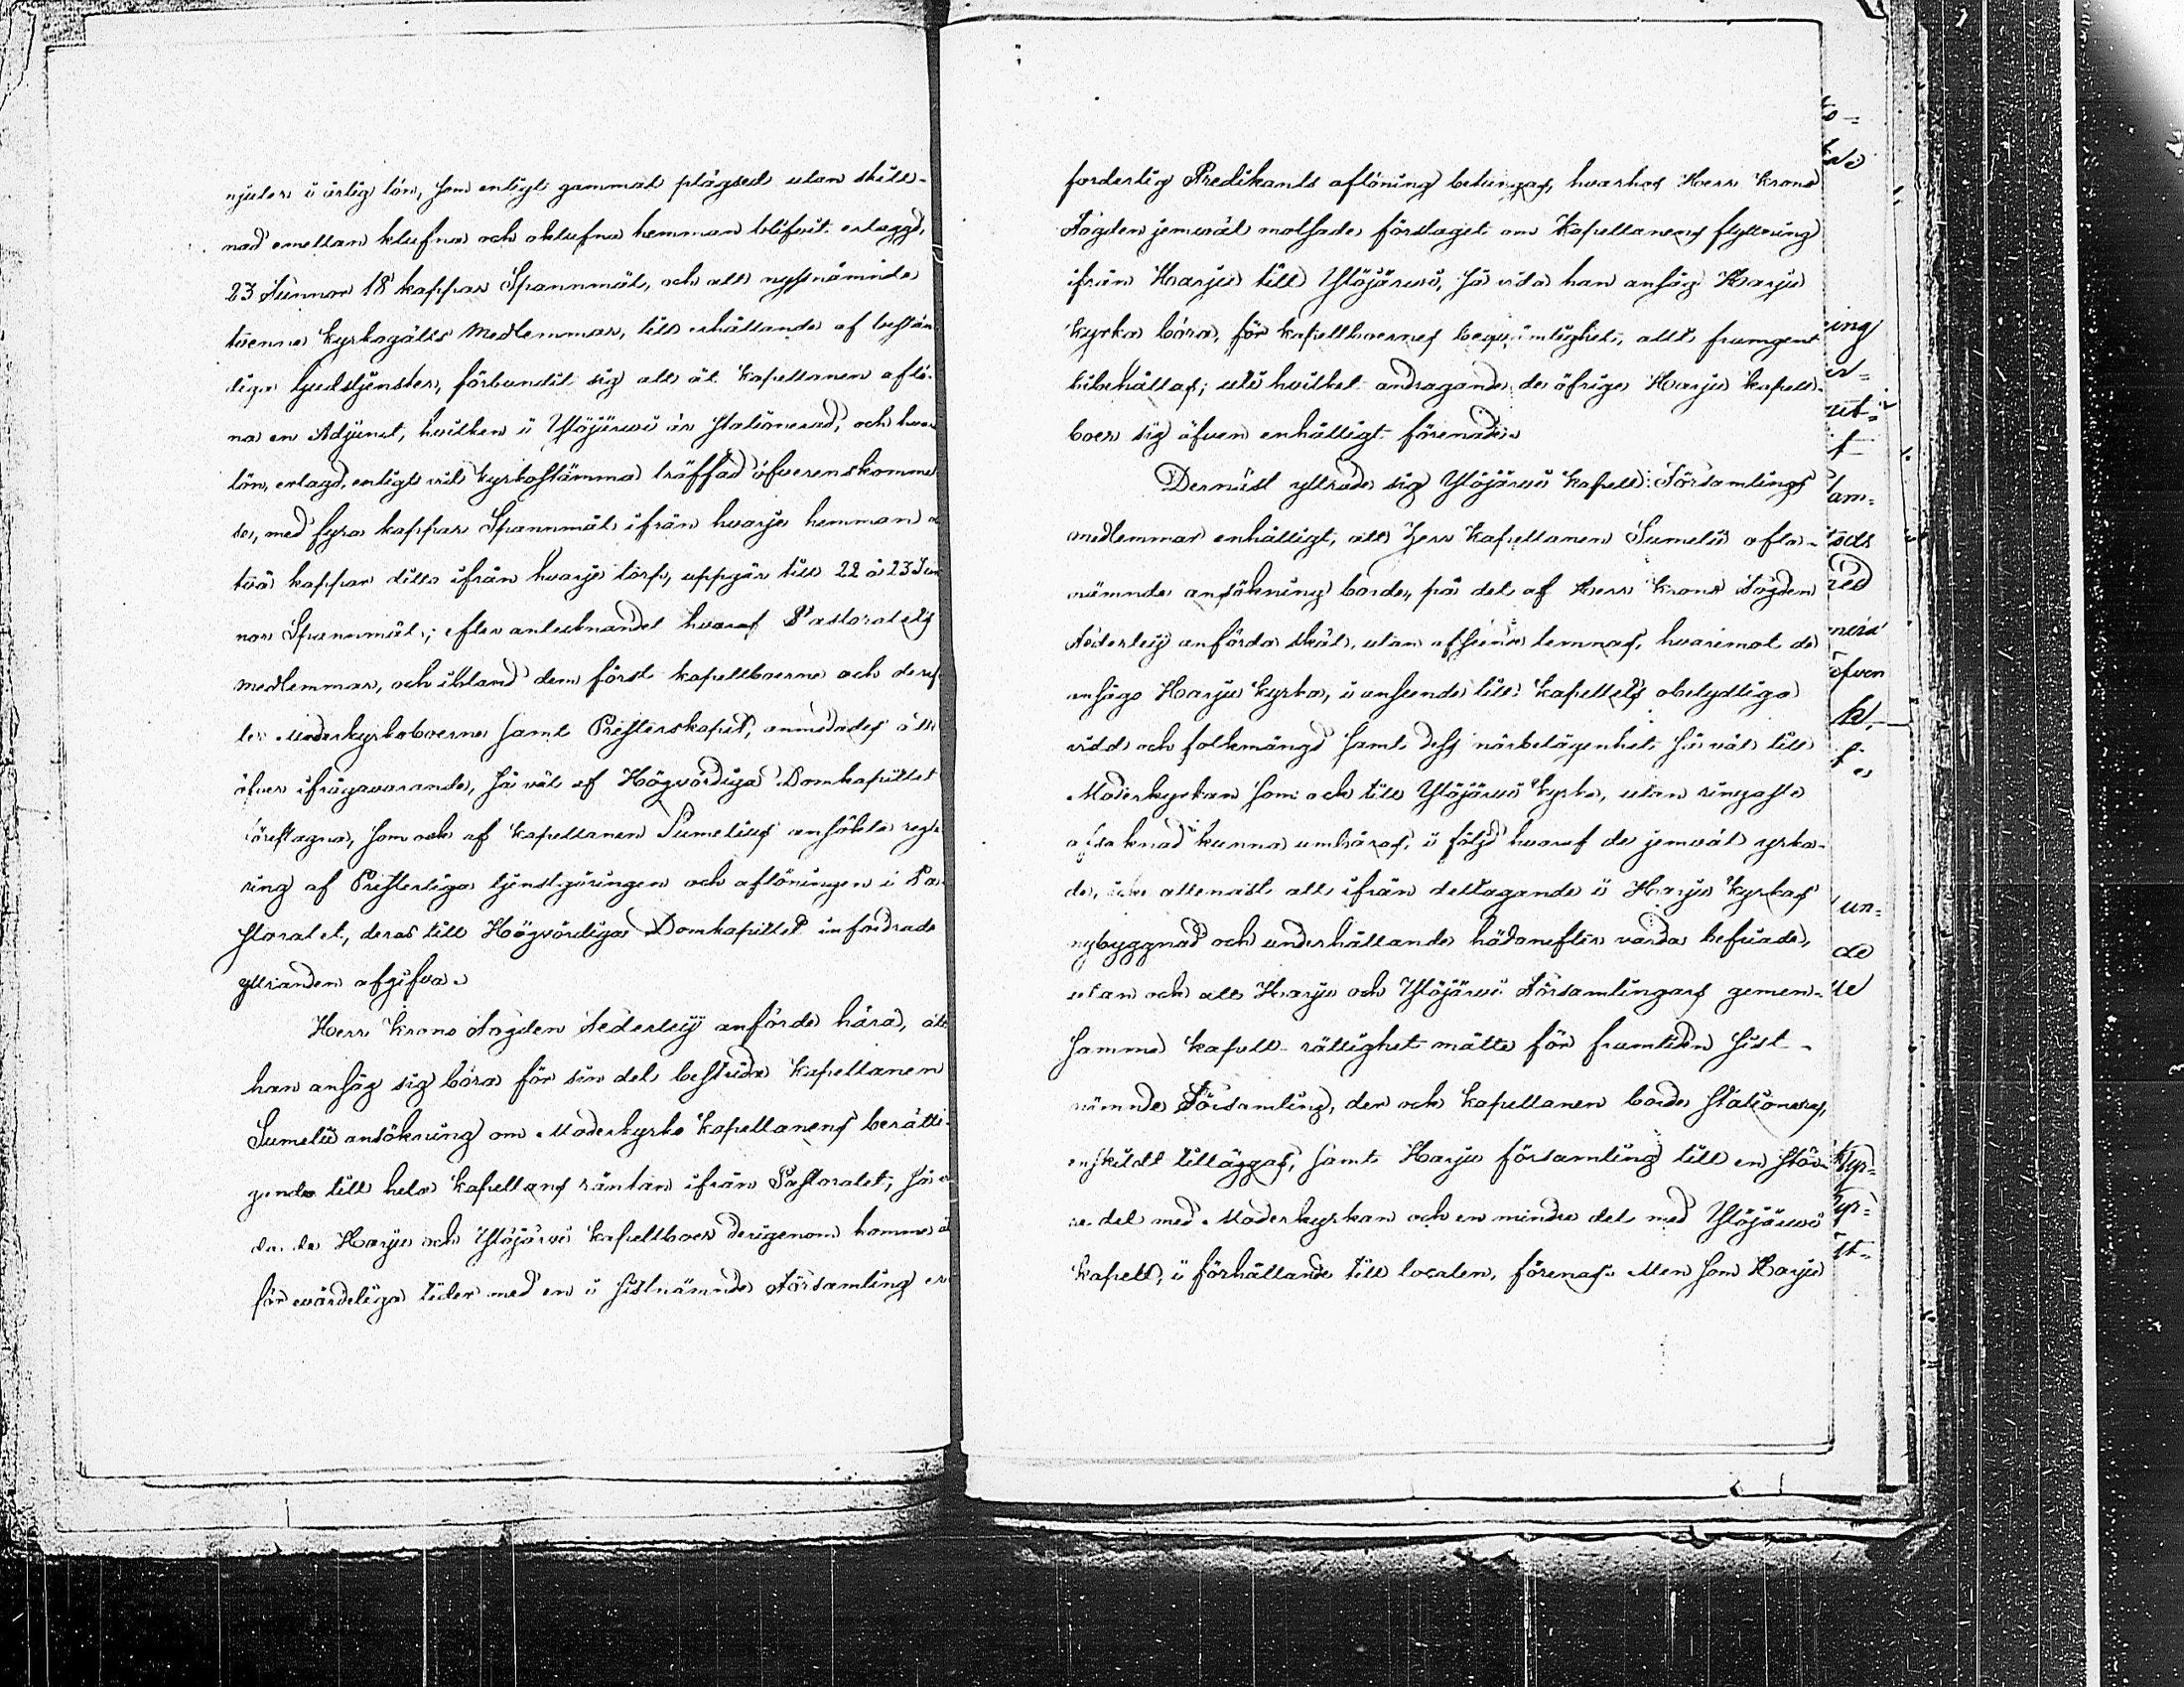 njuter i årlig lön, som enligt gammal plägsed utan skill-
nad emellan klufna och oklufna hemman blifvit erlaggd,
23 Tunnor 18 kappar Spannmål, och att nyssnämnde
tvenne kyrkogälls Medlemmar, till erhållande af bestän
diga Gudstjenster, förbundit sig att åt Kapellanen aflö-
na en Adjunct, hvilken i Ylöjärwi är stationerad, och hvars
lön, erlagd, enligt vid kyrkostämma träffad öfverenskommel
se, med fyra kappar Spannmål ifrån hvarje hemman o
två kappar ditto ifrån hvarje torp, uppgår till 22 à 23 Tun
nor Spannmål; efter antecknandet hvaraf Pastoratets
Medlemmar, och ibland dem först kapellboerne och deref
ter Moderkyrkoboerne samt Presterskapet, anmodades att
öfver ifrågavarande, så väl af Högvördiga Domkapitlet
föreslagna, som och af Kapellanen Sumelius ansökta regle
ring af Presterliga tjenstgöringen och aflöningen i Pa-
storatet, deras till Högvördiga Domkapitlet infordrade
yttranden afgifva.
Herr Krono Fogden Federley anförde härå, att
han ansåg sig böra för sin del bestrida Kapellanen
Sumelii ansökning om Moderkyrko Kapellanens berätti-
gande till hela Kapellans räntan ifrån Pastoratet, så v
da de Harju och Ylöjärwi kapellboer derigenom komme at
för evärdeliga tider med en i sistnämnde Församling er
forderlig Predikants aflöning betungas, hvarhos Herr Krono
Fogden jemwäl motsade förslaget om Kapellanens flyttning
ifrån Harju till Ylöjärwi, så vida han ansåg Harju
kyrka böra, för kapellboernes beqvämlighet, allt framgent
bibehållas; uti hvilket andragande de öfrige Harju kapell-
boer sig äfven enhälligt förenade.
Dernäst yttrade sig Ylöjärwi Kapell-Församlings
medlemmar enhälligt, att Herr Kapellanen Sumelii ofta-
nämnde ansökning borde, på det af Herr Krono Fogden
Federley anförda skäl, utan afseende lemnas, hvaremot de
ansågo Harju kyrka, i anseende till kapellets obetydliga
vidd och folkmängd samt dess närbelägenhet så väl till
Moderkyrkan som och till Ylöjärwi kyrka, utan ringaste
saknad kunna umbäras, i följd hvaraf de jemwäl yrka-
de, icke allenast att ifrån deltagande i Harju kyrkas
nybyggnad och underhållande hädanefter varda befriade,
utan och att Harju och Ylöjärwi Församlingars gemen-
samma kapell-rättighet måtte för framtiden sist-
nämnde Församling, der och Kapellanen borde stationeras,
enskildt tilläggas, samt Harju församling till en stör-
re del med Moderkyrkan och en mindre del med Ylöjärwi
kapell, i förhållande till localen, förenas. Men som Harju